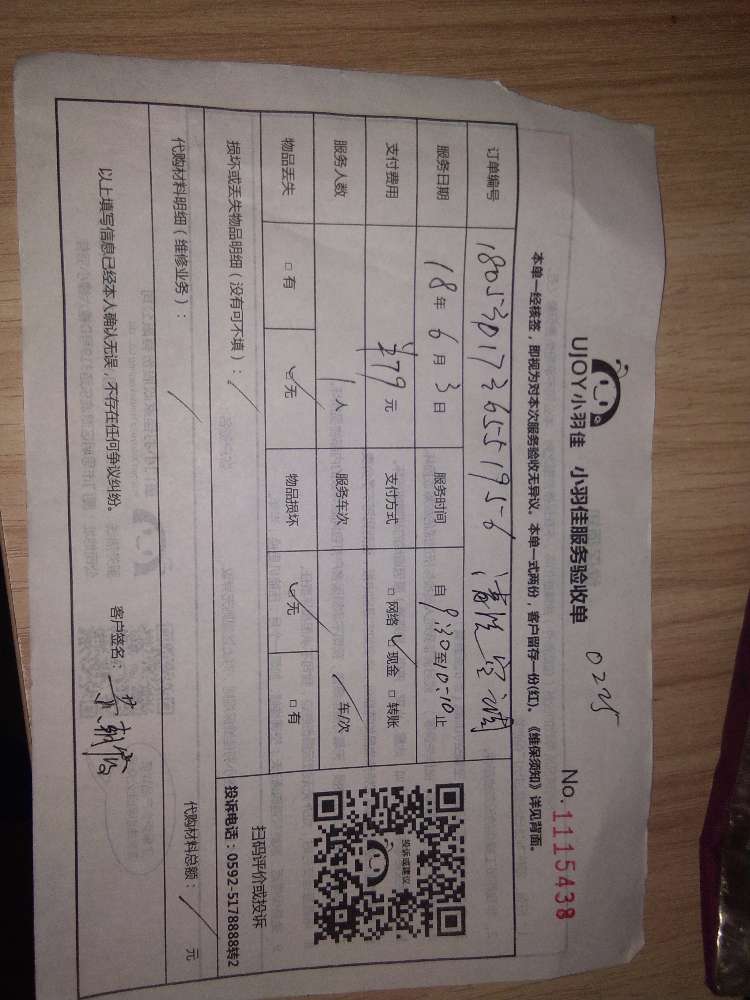 UJOY小羽佳 小羽佳服务验收单 0225
No. 1115438
本单一经核签，即视为对本次服务验收无异议。本单一式两份，客户留存一份(红)。《维保须知》详见背面。
订单编号 180530172655195-6 清洗空调
服务日期 18年6月3日 服务时间 自9:30至10:10止
支付费用 ¥79元 支付方式 □网络 ☑现金 □转账
服务人数 1人 服务车次 / 车/次
物品丢失 □有 ☑无 物品损坏 ☑无 □有
投诉或建议
扫码评价或投诉
投诉电话：0592-5178888转2
损坏或丢失物品明细（没有可不填）：/
代购材料明细（维修业务）：/ 代购材料总额：/ 元
以上填写信息已经本人确认无误，不存在任何争议纠纷。 客户签名：